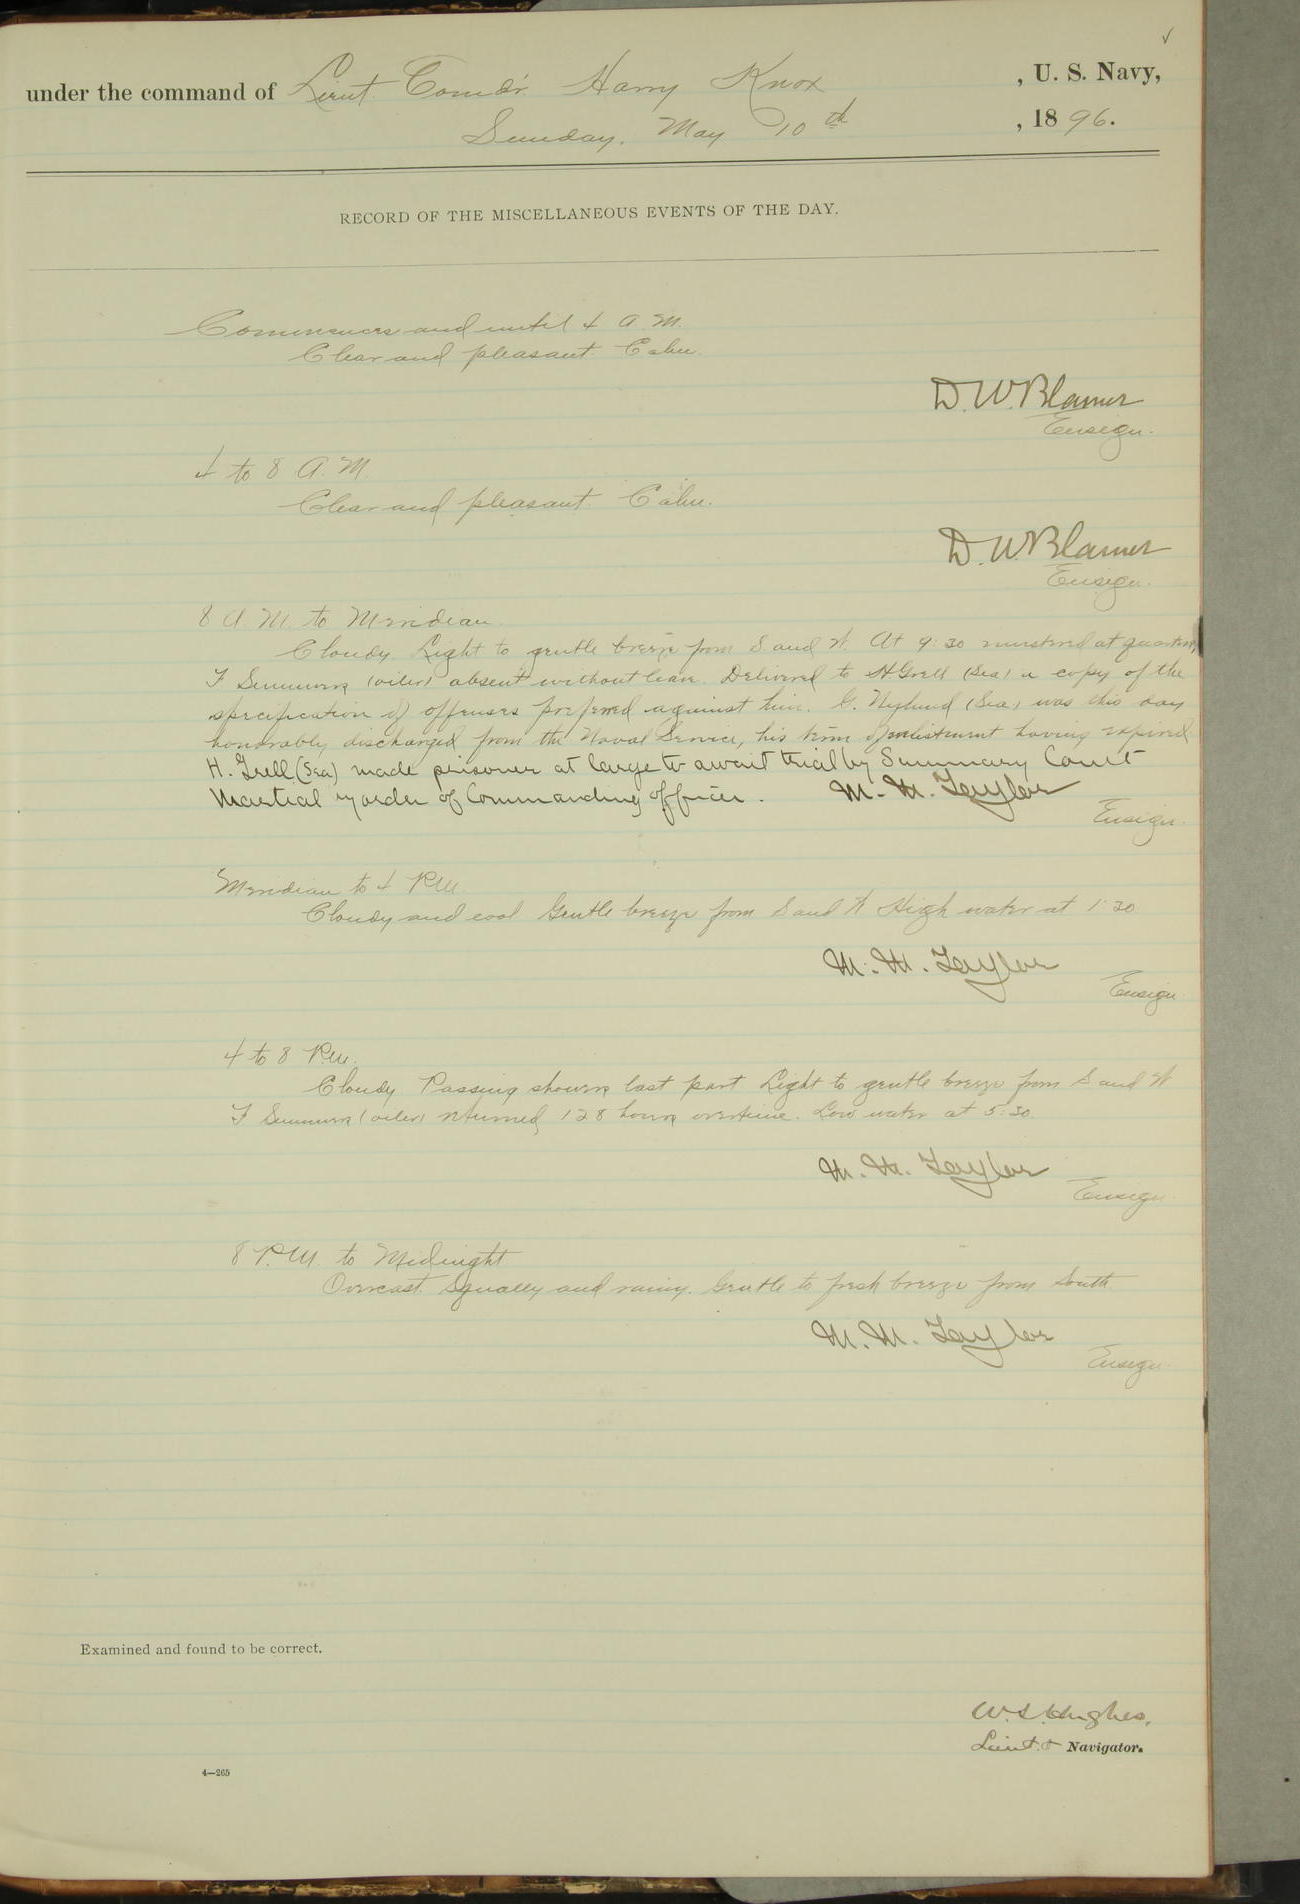 under the command of Lieut. Comd'r. Harry Knox, U. S. Navy,
Sunday, May 10th, 1896.
RECORD OF THE MISCELLANEOUS EVENTS OF THE DAY.
Commences and until 4 A.M.
Clear and pleasant. Calm.
D. W. Blamer
Ensign.
4 to 8 A.M.
Clear and pleasant. Calm.
D. W. Blamer
Ensign.
8 A.M. to Meridian.
Cloudy. Light to gentle breeze from S and W. At 9:30 mustered at quarters,
F Summers (oiler) absent without leave. Delivered to H Grell (Sea) a copy of the
specification of offenses preferred against him. G. Nylund (Sea) was this day
honorably discharged from the Naval Service, his term of enlistment having expired
H. Grell (Sea) made prisoner at large to await trial by Summary Court
Martial by order of Commanding officer. M. M. Taylor
Ensign.
Meridian to 4 P.M.
Cloudy and cool Gentle breeze from S and W High water at 1:30
M. M. Taylor
Ensign
4 to 8 P.M.
Cloudy Passing showers last part Light to gentle breeze from S and W
F Summers (oiler) returned, 128 hours overtime. Low water at 5:30
M. M. Taylor
Ensign
8 P.M. to Midnight
Overcast. Squally and rainy. Gentle to fresh breeze from South.
M. M. Taylor
Ensign.
Examined and found to be correct.
W. S. Hughes,
Lieut. & Navigator.
4—265